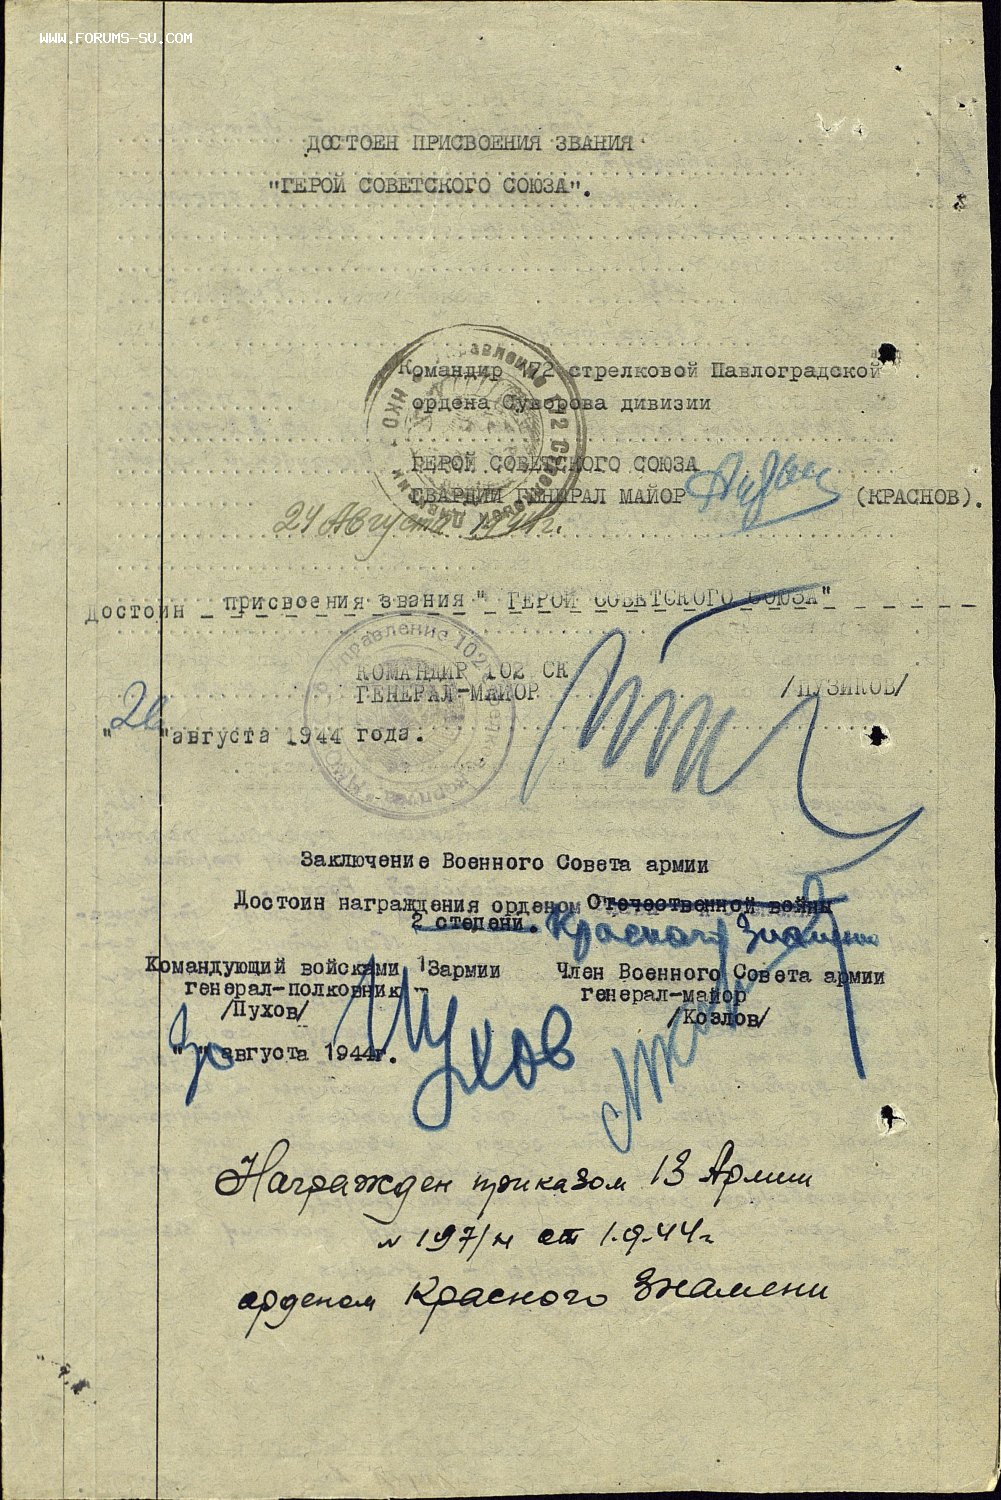 WWW.FORUMS-SU.COM
ДОСТОЕН ПРИСВОЕНИЯ ЗВАНИЯ
"ГЕРОЙ СОВЕТСКОГО СОЮЗА".
Командир 172 стрелковой Павлоградской
ордена Суворова дивизии
ГЕРОЙ СОВЕТСКОГО СОЮЗА
ГВАРДИИ ГЕНЕРАЛ МАЙОР (КРАСНОВ).
24 Августа 1944г.
Достоин присвоения звания " ГЕРОЙ СОВЕТСКОГО СОЮЗА"
Управление 102
КОМАНДИР 102 СК
ГЕНЕРАЛ-МАЙОР /ПУЗИКОВ/
" "августа 1944 года.
Заключение Военного Совета армии
Достоин награждения орденом Отечественной войны
2 степени. Красного Знамени
Командующий войсками 13армии Член Военного Совета армии
генерал-полковник генерал-майор
/Пухов/ /Козлов/
"30" августа 1944г. Пухов
Награжден приказом 13 Армии
№ 197/н от 1.9.44г
орденом Красного Знамени